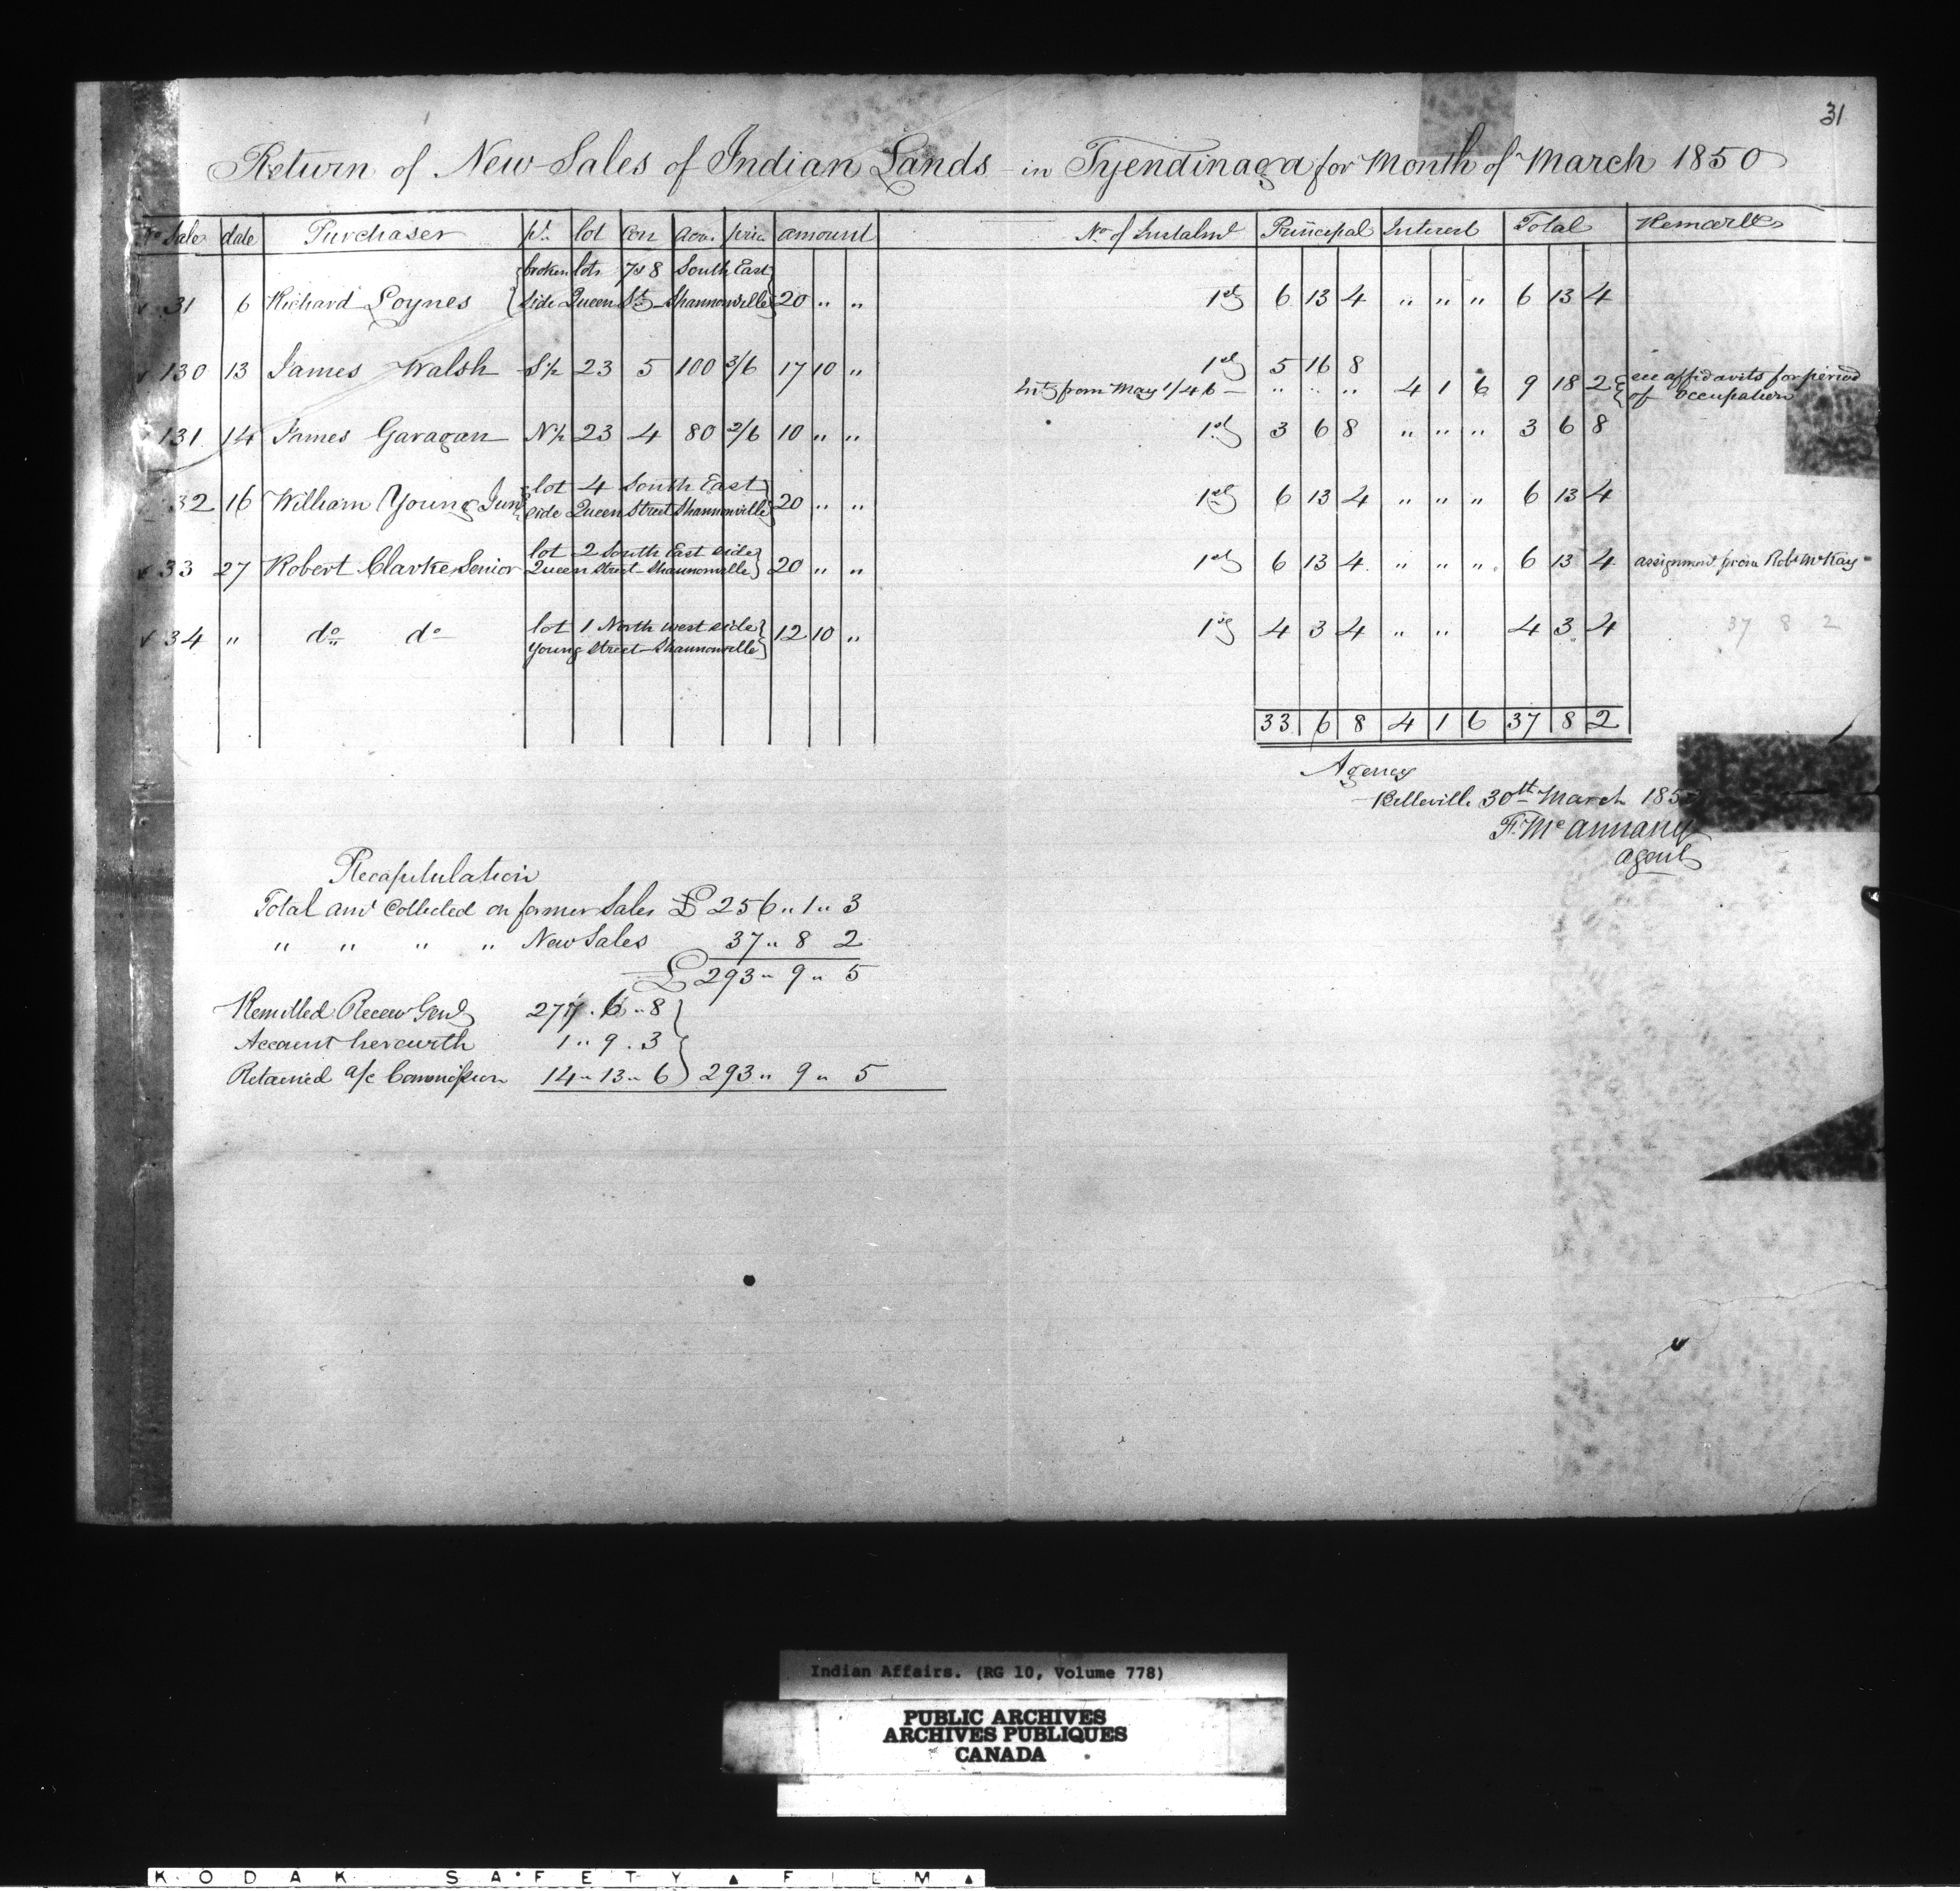 31
Return of New Sales of Indian Lands in Tyendinaga for Month of March 1850
No Sale date Purchaser pt. lot Con Acr. price amount No. of Instalmt Principal Interest Total Remarks
{broken lots 7 & 8 South East}
31 6 Richard Loynes {side Queen St - Shannonville} 20 " " 1st 6 13 4 " " " 6 13 4
130 13 James Walsh S½ 23 5 100 3/6 17 10 " 1st 5 16 8
Int from May 1/46 - " " " 4 1 6 9 18 2 { see affidavits for period
of occupation
131 14 James Garagan N½ 23 4 80 2/6 10 " " 1st 3 6 8 " " " 3 6 8
lot 4 South East}
32 16 William Young Junr side Queen Street Shannonville} 20 " " 1st 6 13 4 " " " 6 13 4
lot 2 South East side}
33 27 Robert Clarke Senior Queen Street - Shannonville} 20 " " 1st 6 13 4 " " " 6 13 4 assignment from Robt McKay
lot 1 North west side}
34 " do do Young Street - Shannonville} 12 10 " 1st 4 3 4 " " 4 3 4 37 8 2
33 6 8 4 1 6 37 8 2
Agency
Belleville 30th March 185
F. McAnnany
agent
Recapitulation
Total amt Collected on former Sales £ 256 " 1 " 3
" " " " New Sales 37 " 8 2
£ 293 " 9 " 5
Remitted Receiv Genl 277 . 6 " 8 }
Account herewith 1 " 9 . 3 }
Retained a/c Commission 14 " 13 " 6 } 293 " 9 " 5
Indian Affairs. (RG 10, Volume 778)
PUBLIC ARCHIVES
ARCHIVES PUBLIQUES
CANADA
KODAK SAFETY ▲ FILM ▲